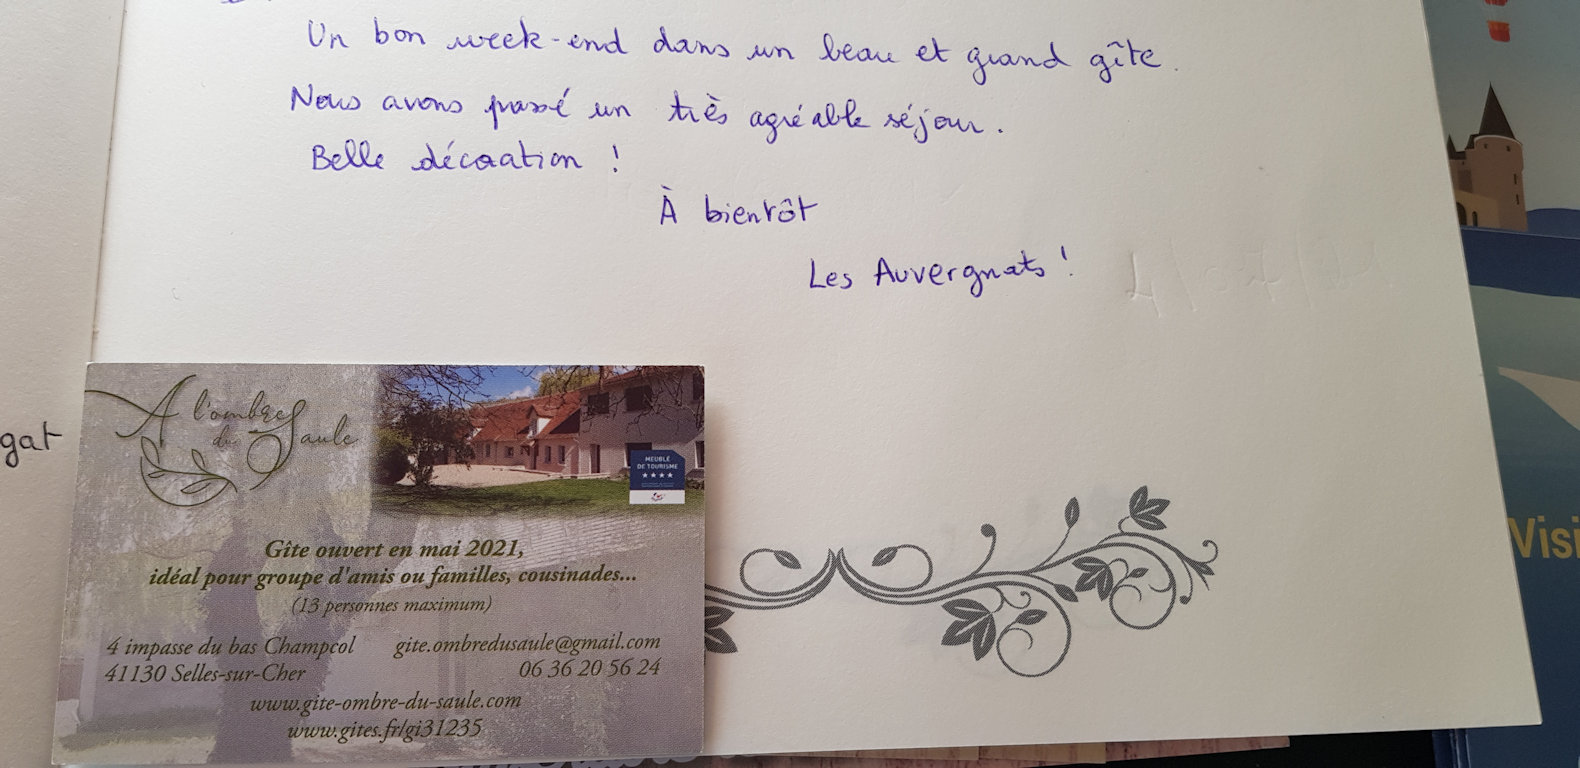 Un bon week-end dans un beau et grand gîte.
Nous avons passé un très agréable séjour.
Belle décoration !
À bientôt
Les Auvergnats !
gat
A l'ombre
du Saule
MEUBLÉ
DE TOURISME
★★★★
Gîte ouvert en mai 2021,
idéal pour groupe d'amis ou familles, cousinades...
(13 personnes maximum)
4 impasse du bas Champcol gite.ombredusaule@gmail.com
41130 Selles-sur-Cher 06 36 20 56 24
www.gite-ombre-du-saule.com
www.gites.fr/gi31235
Visi